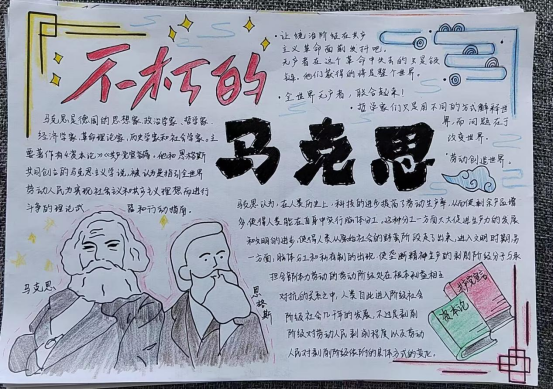 不朽的
马克思
·让统治阶级在共产
主义革命面前发抖吧。
无产者在这个革命中失去的只是锁
链。他们获得的将是整个世界。
·全世界无产者，联合起来！
·哲学家们只是用不同的方式解释世
界，而问题在于
改变世界。
·劳动创造世界。
马克思是德国的思想家、政治学家、哲学家、
经济学家、革命理论家、历史学家和社会学家。主
要著作有《资本论》《共产党宣言》，他和恩格斯
共同创立的马克思主义学说，被认为是指引全世界
劳动人民为实现社会主义和共产主义理想而进行
斗争的理论武器和行动指南。
马克思认为，在人类历史上，科技的进步提高了劳动生产率，从而使剩余产品增
多，使得人类能在自身中实行脑体分工，这种分工一方面大大促进生产力的发展
和文明的进步，使得人类从原始社会的野蛮阶段走了出来，进入文明时期，另
一方面，脑体分工和私有制的出现，使
但多数体力劳动的劳动阶级处在根本利益相互
对抗的关系之中，人类自此进入阶级社会
阶级社会几千年的发展，不过是剥削
阶级对劳动人民剥削程度以及劳动
人民对剥削阶级依附的具体方式的变化。
马克思
恩格斯
共产党宣言
资本论